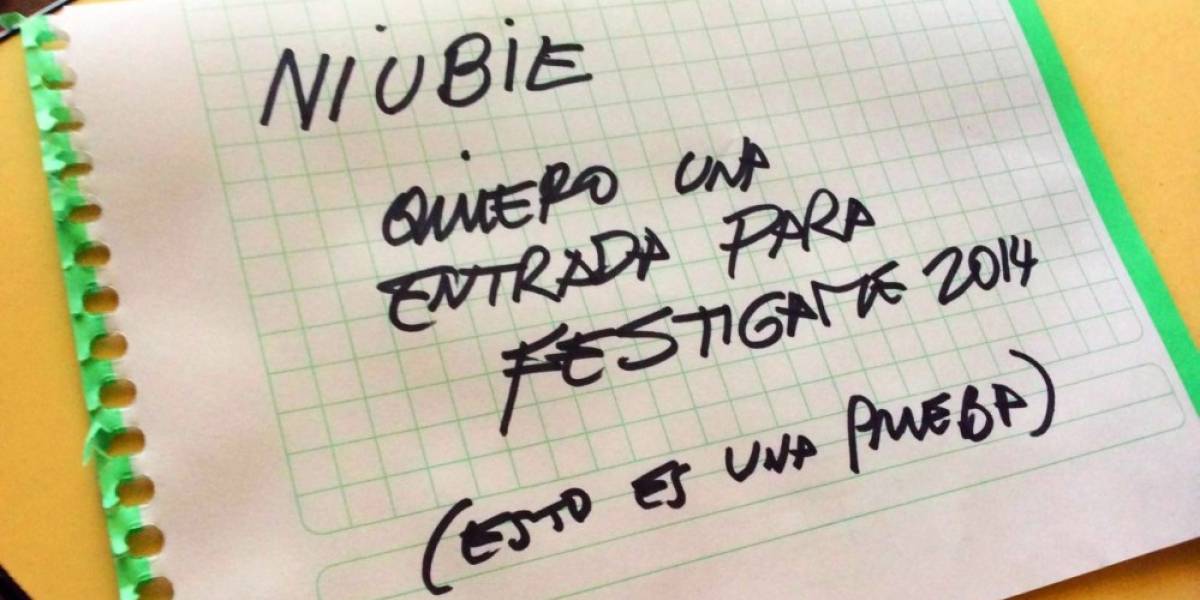 NIUBIE
QUIERO UNA
ENTRADA PARA
FESTIGAME 2014
(ESTO ES UNA PRUEBA)